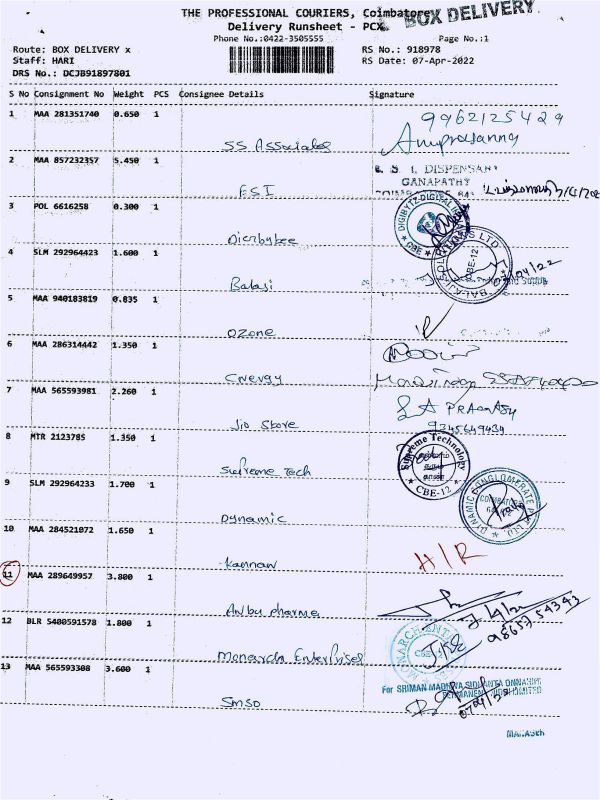 THE PROFESSIONAL COURIERS, Coimbatore
BOX DELIVERY
Delivery Runsheet - PCX
Phone No.:0422-3505555
Page No.:1
Route: BOX DELIVERY x
RS No.: 918978
Staff: HARI
RS Date: 07-Apr-2022
DRS No.: DCJB91897801
S No Consignment No Weight PCS Consignee Details Signature
1 MAA 281351740 0.650 1
9962125429
SS Associates
2 MAA 857232357 5.450 1
E. S. I. DISPENSARY
GANAPATHY
ESI
3 POL 6616258 0.300 1
DIGIBYTZ DIGITAL
CBE
4 SLM 292964423 1.600 1
CBE-12
07/04/22
Balaji
5 MAA 940183819 0.835 1
OZONE
6 MAA 286314442 1.350 1
Cnergy
7 MAA 565593981 2.260 1
Jio Store
9345649434
8 MTR 2123785 1.350 1
Supreme Technology
CBE-12
Supreme Tech
9 SLM 292964233 1.700 1
DYNAMIC CONGLOMERATE
Dynamic
10 MAA 284521072 1.650 1
H/R
Kannan
11 MAA 289649957 3.800 1
Anbu pharma
12 BLR 5400591578 1.800 1
MONARCH ENTERPRISES
Monarch Enterprises
13 MAA 565593308 3.600 1
For SRIMAN MADHVA SIDDHANTA
PERMANENT LIMITED
SMSO
MANAGER